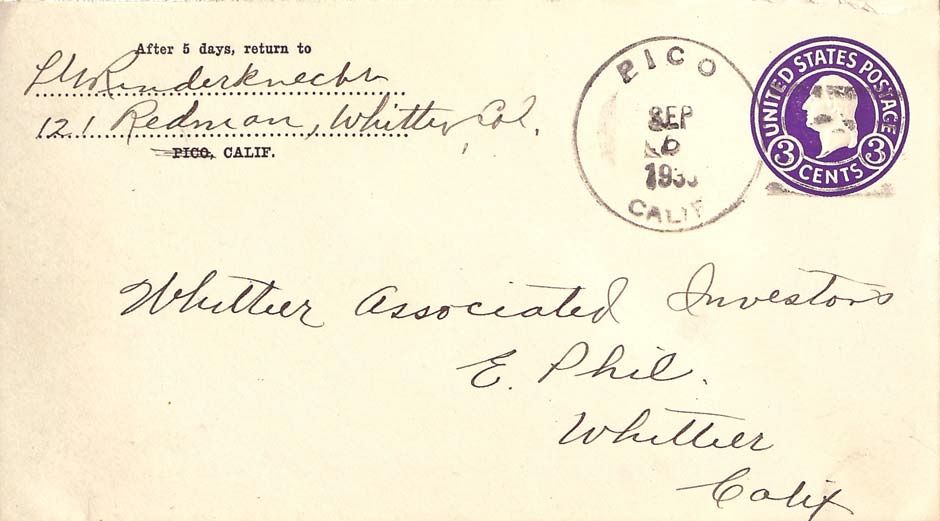 After 5 days, return to
Runderknecht
121 Redman, Whittier, Cal.
PICO, CALIF.
PICO
SEP
6
CALIF
UNITED STATES POSTAGE
3 3
CENTS
Whittier Associated Investors
E. Phil.
Whittier
Calif